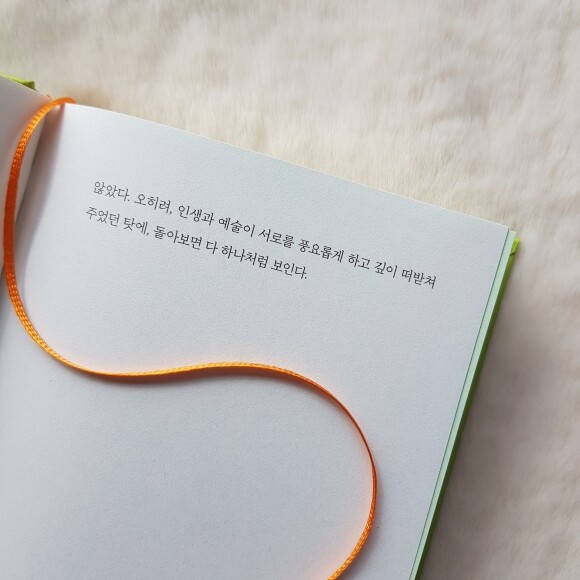 않았다. 오히려, 인생과 예술이 서로를 풍요롭게 하고 깊이 떠받쳐
주었던 탓에, 돌아보면 다 하나처럼 보인다.